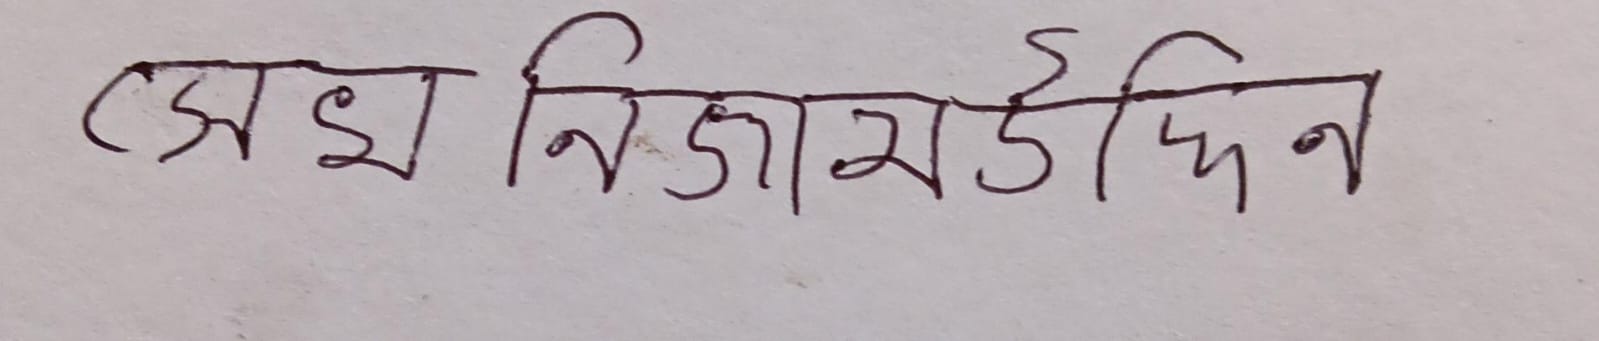 সেখ নিজামউদ্দিন